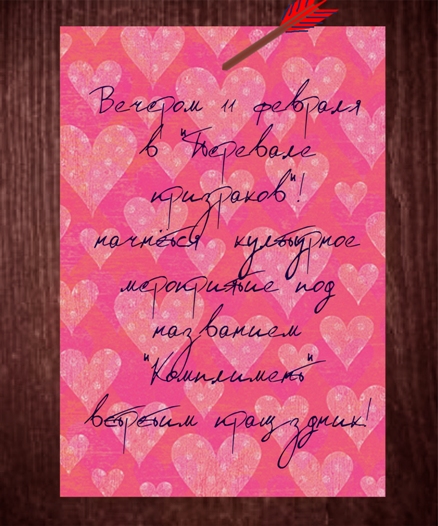 Вечером 11 февраля
в "Перевале
призраков"!
начнётся культурное
мероприятие под
названием
"Комплименть"
встретим празздник!